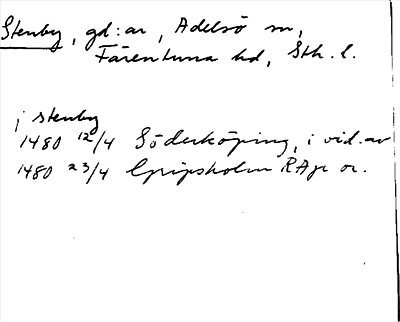 Stenby, gd:ar, Adelsö sn,
Färentuna hd, Sth. l.
i stenby
1480 12/4 Söderköping, i vid. av
1480 23/4 Gripsholm RAp or.